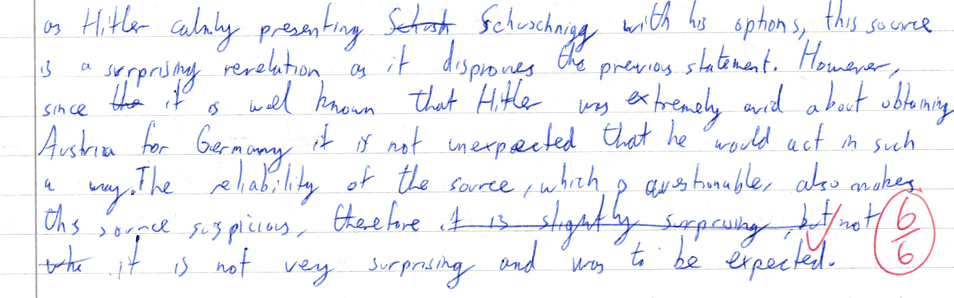 as Hitler calmly presenting Schuschnigg with his options, this source
is a surprising revelation as it disproves the previous statement. However,
since the it is well known that Hitler was extremely avid about obtaining
Austria for Germany it is not unexpected that he would act in such
a way. The reliability of the source, which is questionable, also makes
this source suspicious, therefore it is slightly surprising, but not
it is not very surprising and was to be expected.
6/6